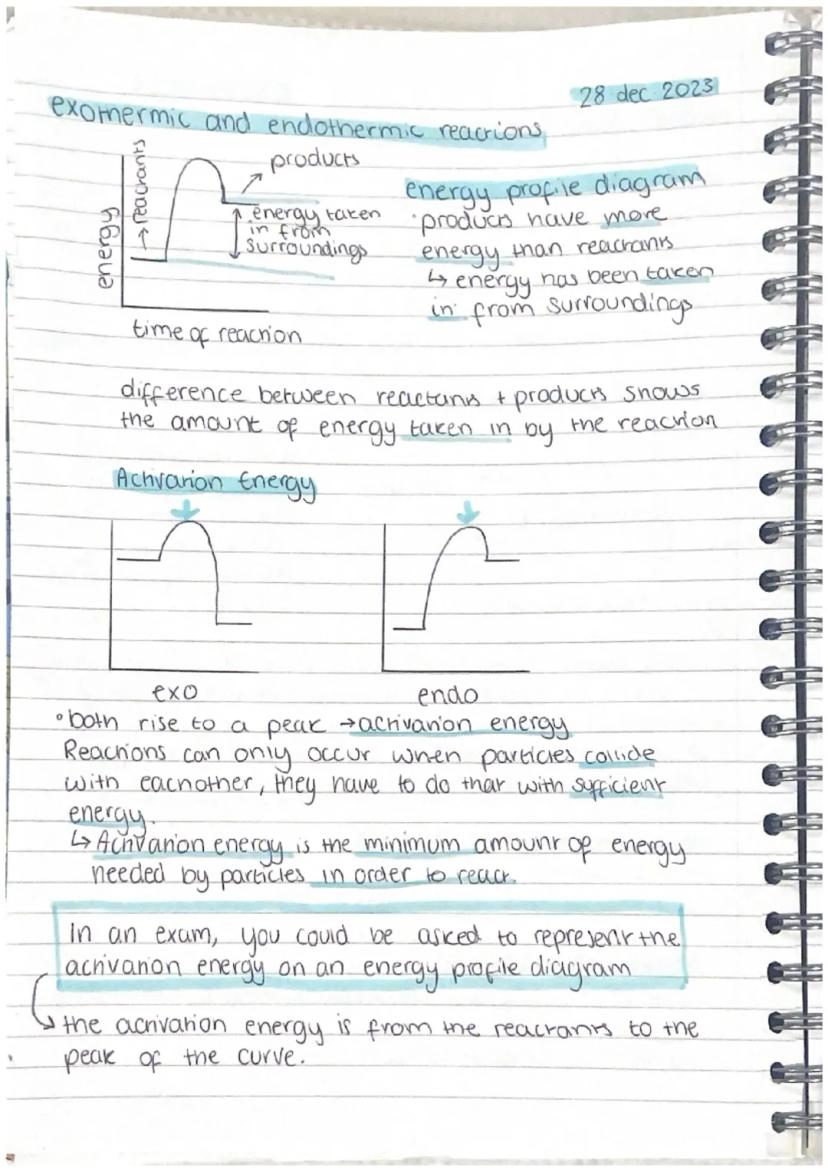 28 dec 2023
exothermic and endothermic reactions
energy
→ reactants
products
energy taken
in from
surroundings
time of reaction
energy profile diagram
· products have more
energy than reactants
↳ energy has been taken
in from surroundings
difference between reactants + products shows
the amount of energy taken in by the reaction
Activation Energy
exo
endo
• both rise to a peak → activation energy
Reactions can only occur when particles collide
with eachother, they have to do that with sufficient
energy.
↳ Activation energy is the minimum amount of energy
needed by particles in order to react.
In an exam, you could be asked to represent the
activation energy on an energy profile diagram
↳ the activation energy is from the reactants to the
peak of the curve.